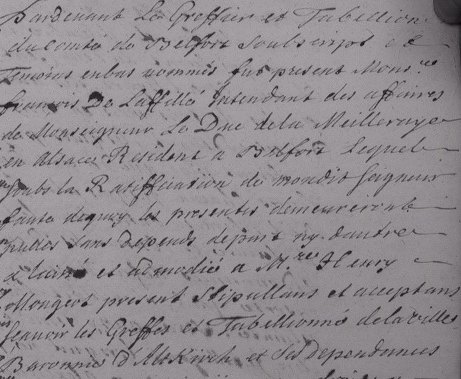 Pardenant Le Greffier et Tabellion
du comté de Belfort Soubscript et
Temoins enbas nommés fut present Mons.
francois De Laffillé Intendant des affaires
de Monseigneur Le Duc dela Meilleraye
en alsace Resident a Belfort Lequel
soubs la Ratiffication de mondit seigneur
faute dequoy les presentes demeureront
nulles sans depends depart ny dautre
a laissé et admodié a M. Henry
Mongeot present Stipullans et acceptans
scavoir les Greffes et Tabellionné dela ville
Baronnie d'Altkirch et ses dependances